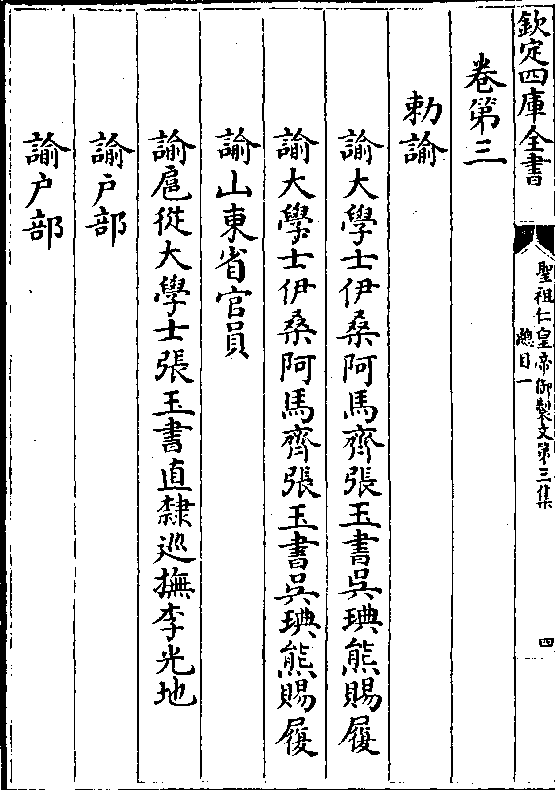 欽定四庫全書
聖祖仁皇帝御製文第三集
總目一
四
卷第三
勅諭
諭大學士伊桑阿馬齊張玉書吳琠熊賜履
諭大學士伊桑阿馬齊張玉書吳琠熊賜履
諭山東省官員
諭扈從大學士張玉書直隸巡撫李光地
諭户部
諭户部